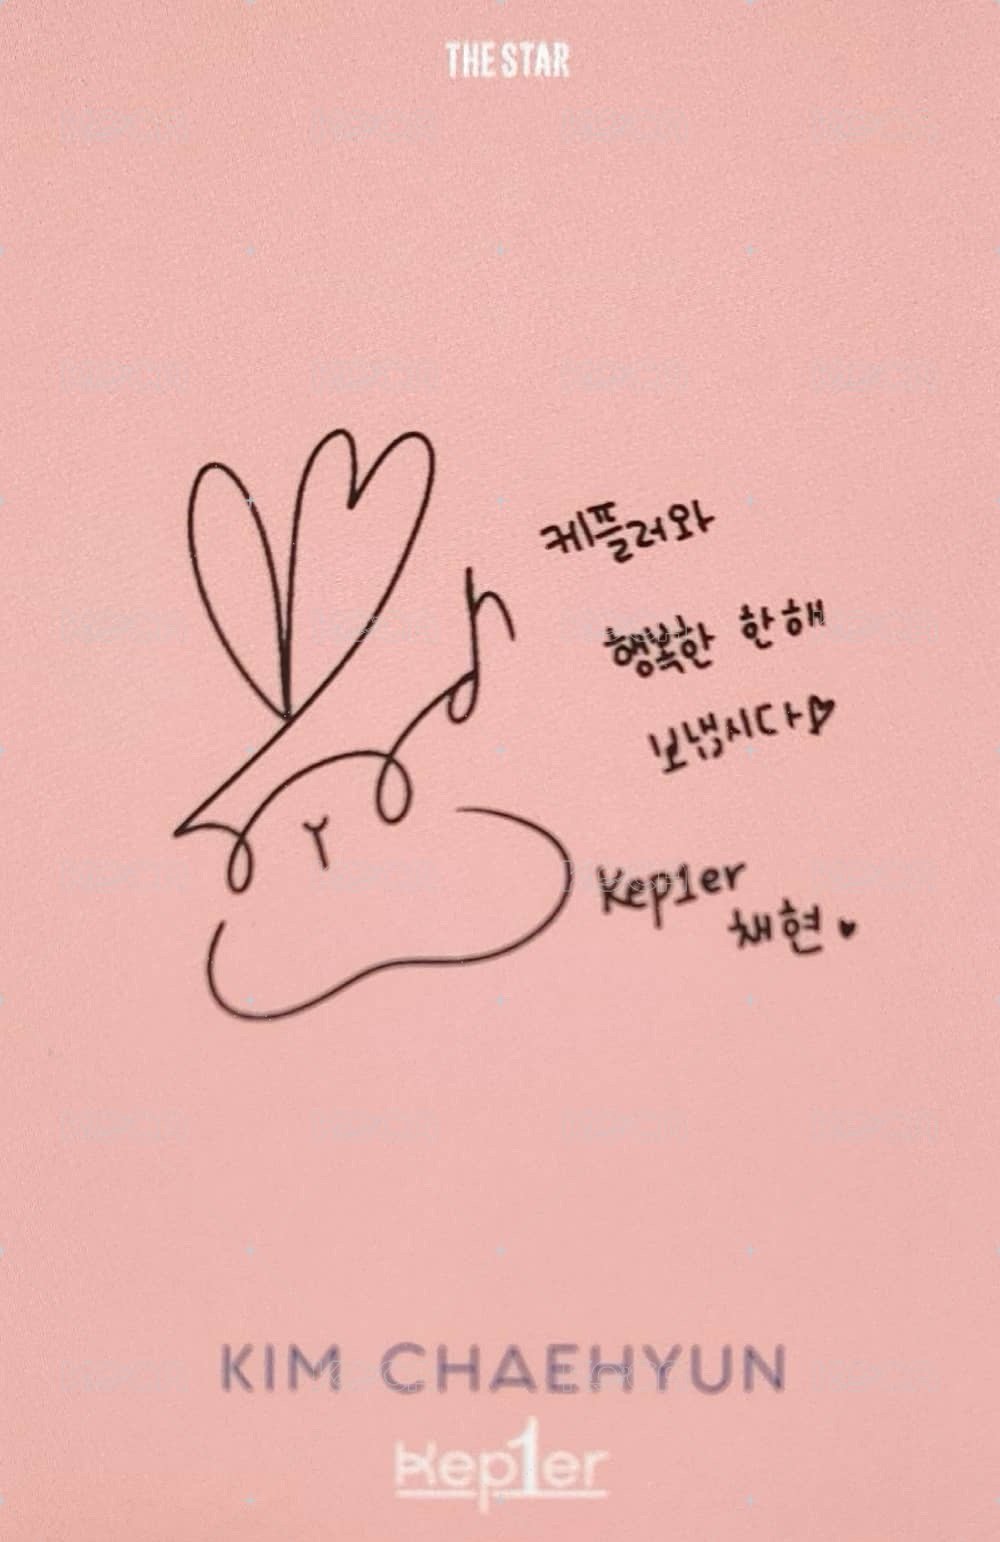 THE STAR
케플러와
행복한 한해
보냅시다♡
Kep1er
채현♥
KIM CHAEHYUN
Kep1er